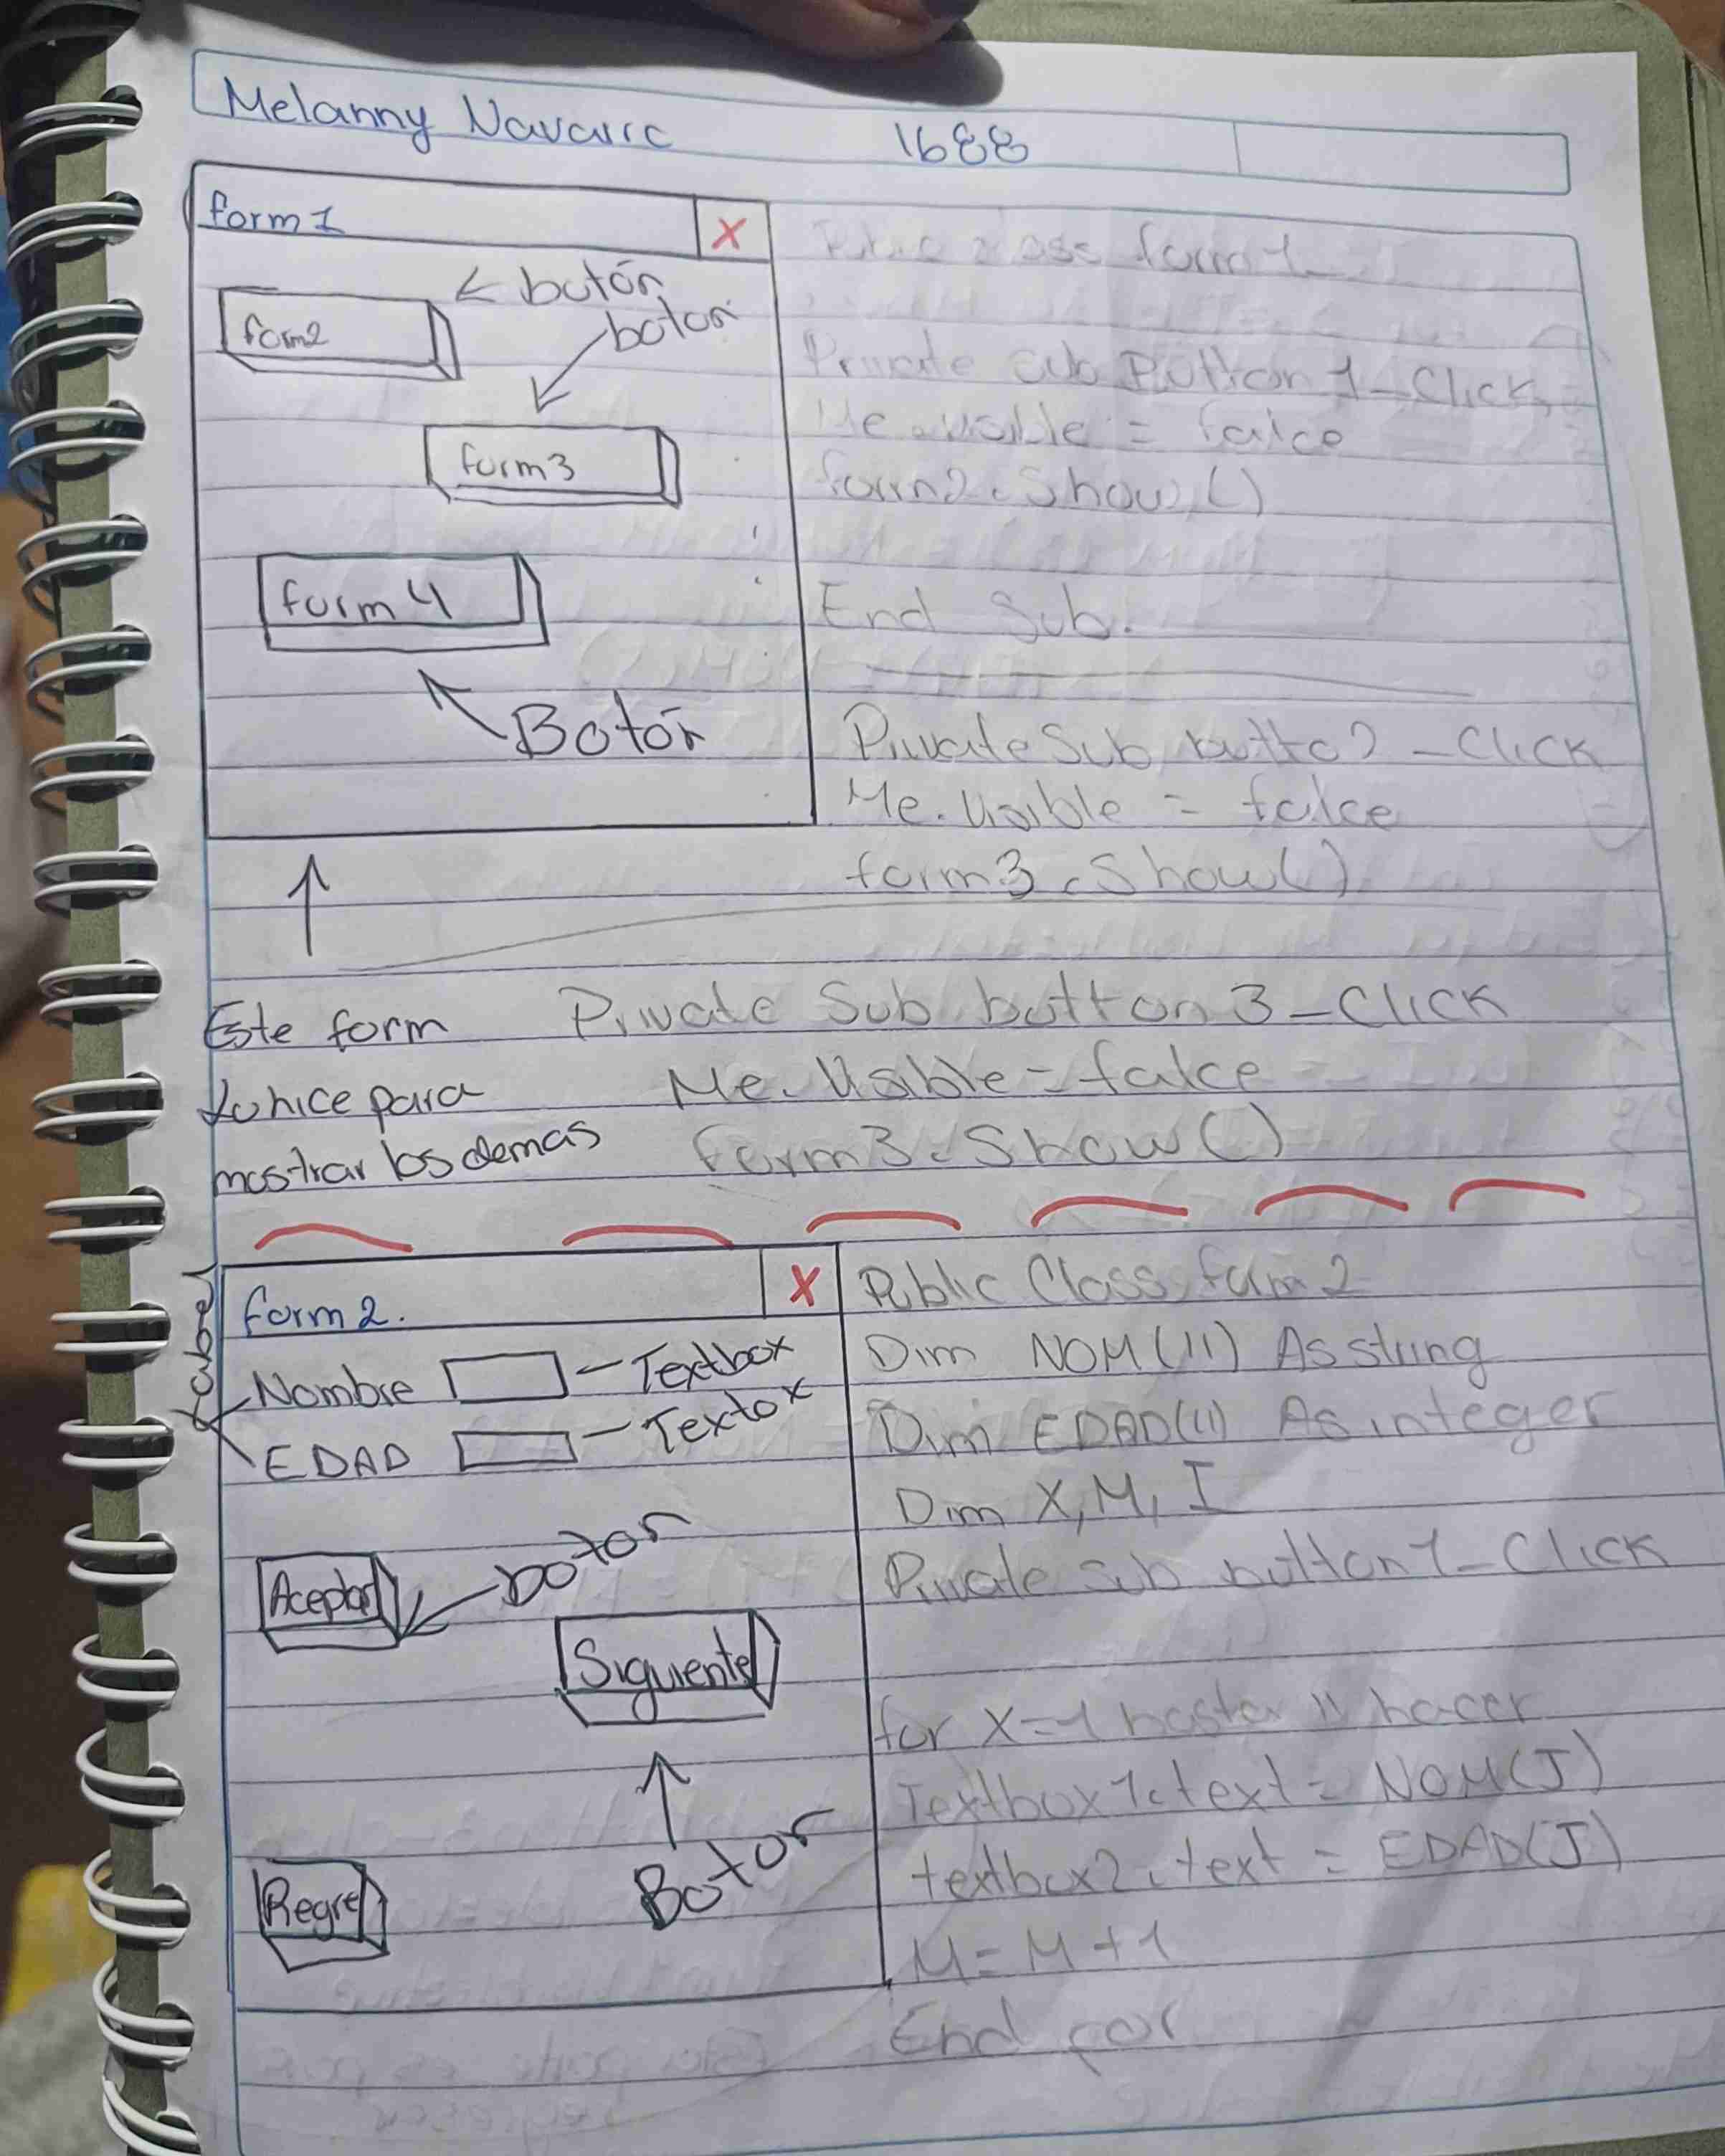 Melanny Navarrc 1688
form1 X
← botón
botón
form2
form3
form 4
Botón
Public class form1
Private sub Button 1_Click
Me.visible = falce
form2.Show()
End Sub.
Private Sub butto2_Click
Me.Visible = falce
form3.Show()
Este form
lo hice para
mostrar los demas
Private Sub button3_Click
Me.Visible = falce
form3.Show()
form2. X
Label
Nombre - Textbox
EDAD - Textox
Aceptar
boton
Siguiente
Boton
Regre
Public Class form2
Dim NOM(11) As string
Dim EDAD(11) As integer
Dim X, M, I
Private sub button1_Click
for X=1 hasta 11 hacer
Textbox1.text = NOM(J)
textbox2.text = EDAD(J)
M = M + 1
End for